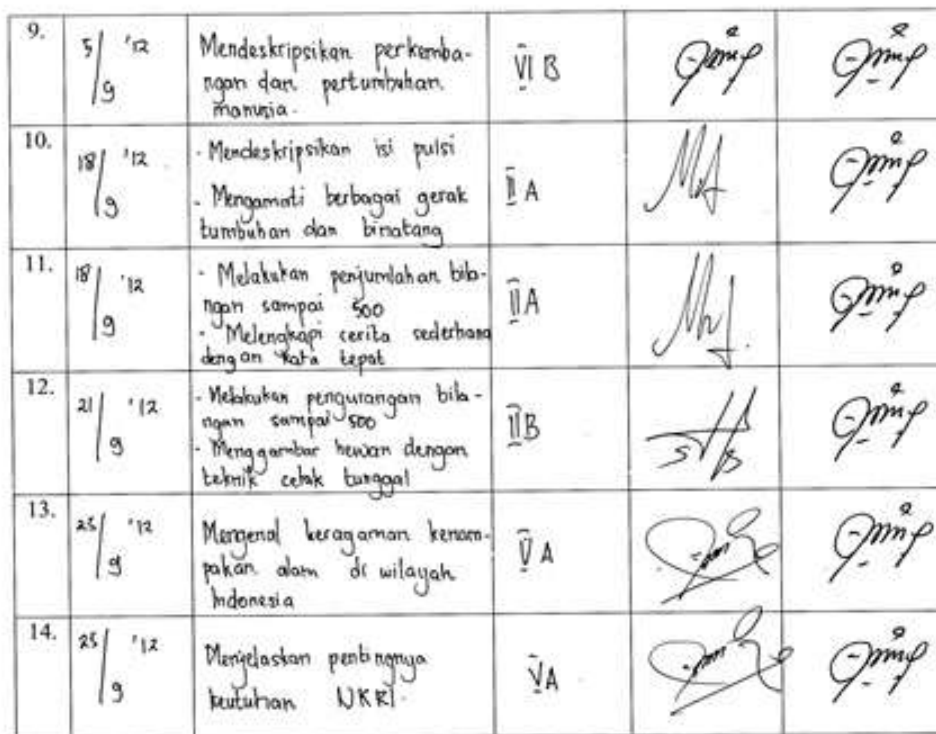 9.
5/9 '12
Mendeskripsikan perkemba-
ngan dan pertumbuhan
manusia.
VI B
10.
18/9 '12
- Mendeskripsikan isi pulsi
- Mengamati berbagai gerak
tumbuhan dan binatang
II A
11.
18/9 '12
- Melakukan penjumlahan bila-
ngan sampai 500
- Melengkapi cerita sederhana
dengan kata tepat
II A
12.
21/9 '12
- Melakukan pengurangan bila-
ngan sampai 500
- Menggambar hewan dengan
teknik cetak tunggal
II B
13.
25/9 '12
Mengenal keragaman kenam-
pakan alam di wilayah
Indonesia
V A
14.
25/9 '12
Menjelaskan pentingnya
keutuhan NKRI.
V A